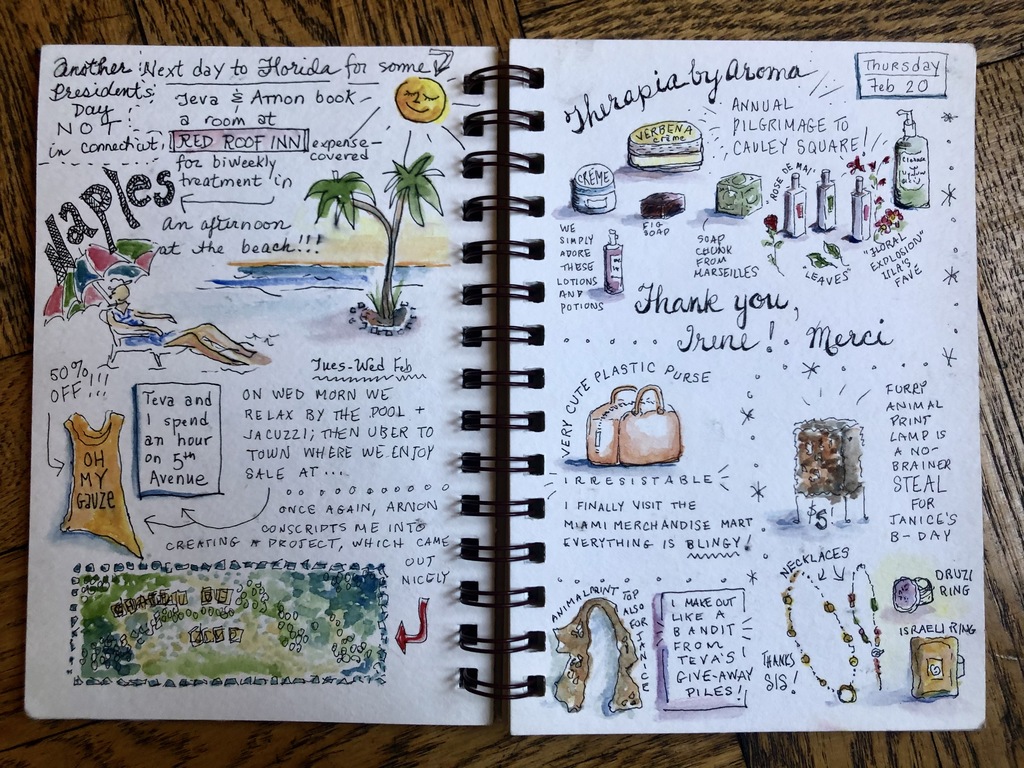 Another
President's
Day
NOT
in Connecticut,
Next day to Florida for some
Teva & Arnon book
a room at
RED ROOF INN
expense-
covered
for biweekly
treatment in
Naples
An afternoon
at the beach!!!
Tues-Wed Feb
50%
OFF!!!
OH
MY
GAUZE
Teva and
I spend
an hour
on 5th
Avenue
ON WED MORN WE
RELAX BY THE POOL +
JACUZZI; THEN UBER TO
TOWN WHERE WE ENJOY
SALE AT...
ONCE AGAIN, ARNON
CONSCRIPTS ME INTO
CREATING A PROJECT, WHICH CAME
OUT
NICELY
Therapia by Aroma
Thursday
Feb 20
ANNUAL
PILGRIMAGE TO
CAULEY SQUARE!
VERBENA
crème
CRÈME
FIG
SOAP
SOAP
CHUNK
FROM
MARSEILLES
ROSE DE MAI
"LEAVES"
"FLORAL
EXPLOSION"
LILA'S
FAVE
WE
SIMPLY
ADORE
THESE
LOTIONS
AND
POTIONS
Thank you,
Irene! Merci
VERY CUTE PLASTIC PURSE
IRRESISTABLE
I FINALLY VISIT THE
MIAMI MERCHANDISE MART
EVERYTHING IS BLINGY!
$5!
FURRY
ANIMAL
PRINT
LAMP IS
A NO-
BRAINER
STEAL
FOR
JANICE'S
B-DAY
ANIMAL PRINT TOP
ALSO
FOR
JANICE
I MAKE OUT
LIKE A
BANDIT
FROM
TEVA'S
GIVE-AWAY
PILES!
NECKLACES
THANKS
SIS!
DRUZI
RING
ISRAELI RING